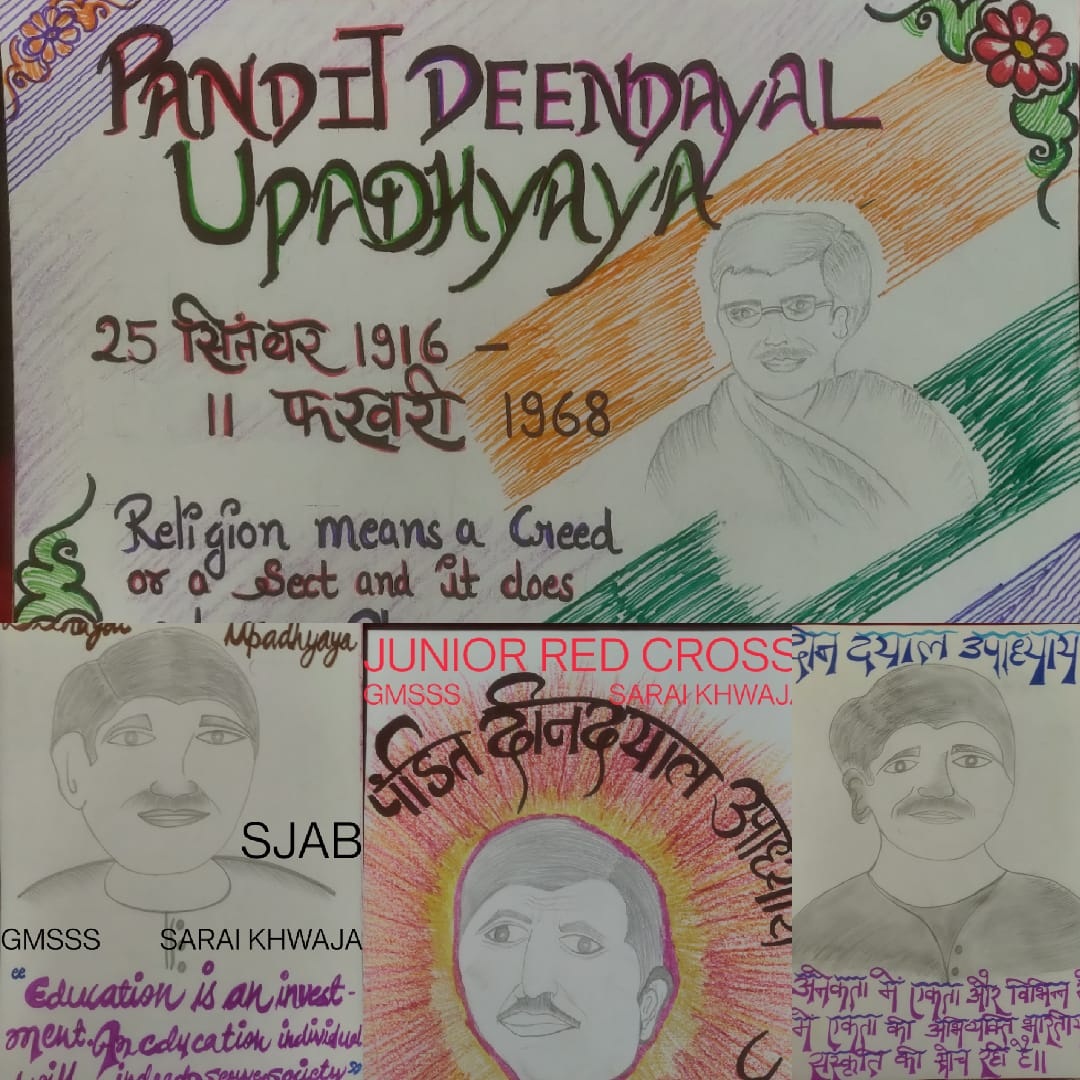 PANDIT DEENDAYAL
UPADHYAYA
25 सितंबर 1916 –
11 फरवरी 1968
Religion means a Creed
or a Sect and it does
Upadhyaya
SJAB
GMSSS SARAI KHWAJA
"Education is an invest-
ment. An education individual
will indeed serve society"
JUNIOR RED CROSS
GMSSS SARAI KHWAJA
पंडित दीनदयाल उपाध्याय
दीन दयाल उपाध्याय
अनेकता में एकता और विभिन्न
में एकता की अभिव्यक्ति भारतीय
संस्कृति की सोच रही है॥